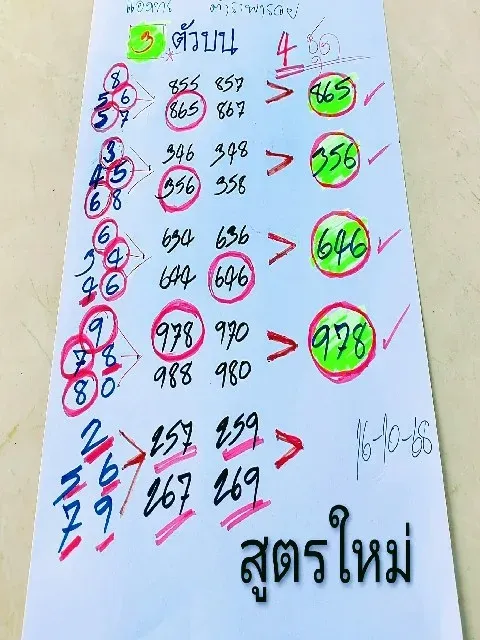 3 ตัวบน 4 ชุด
8
5 6
5 7
855 857
865 867
> 865
3
4 5
6 8
346 348
356 358
> 356
6
3 4
4 6
634 636
644 646
> 646
9
7 8
8 0
978 970
988 980
> 978
2
5 6
7 9
257 259
267 269
>
16-10-68
สูตรใหม่